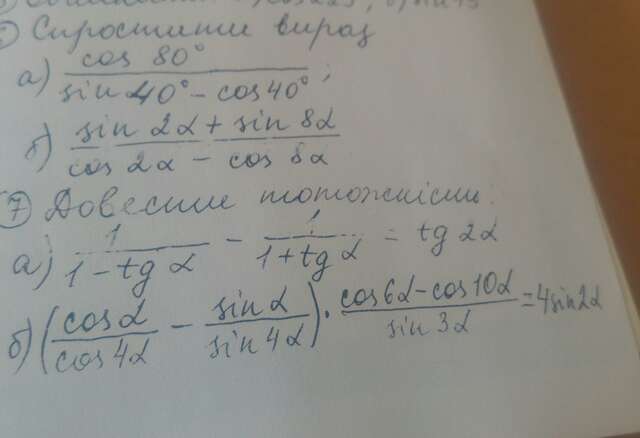 Спростити вираз
а) cos 80° / (sin 40° - cos 40°);
б) (sin 2α + sin 8α) / (cos 2α - cos 8α)
7) Довести тотожність:
а) 1 / (1 - tg α) - 1 / (1 + tg α) = tg 2α
б) (cos α / cos 4α - sin α / sin 4α) · (cos 6α - cos 10α) / sin 3α = 4 sin 2α